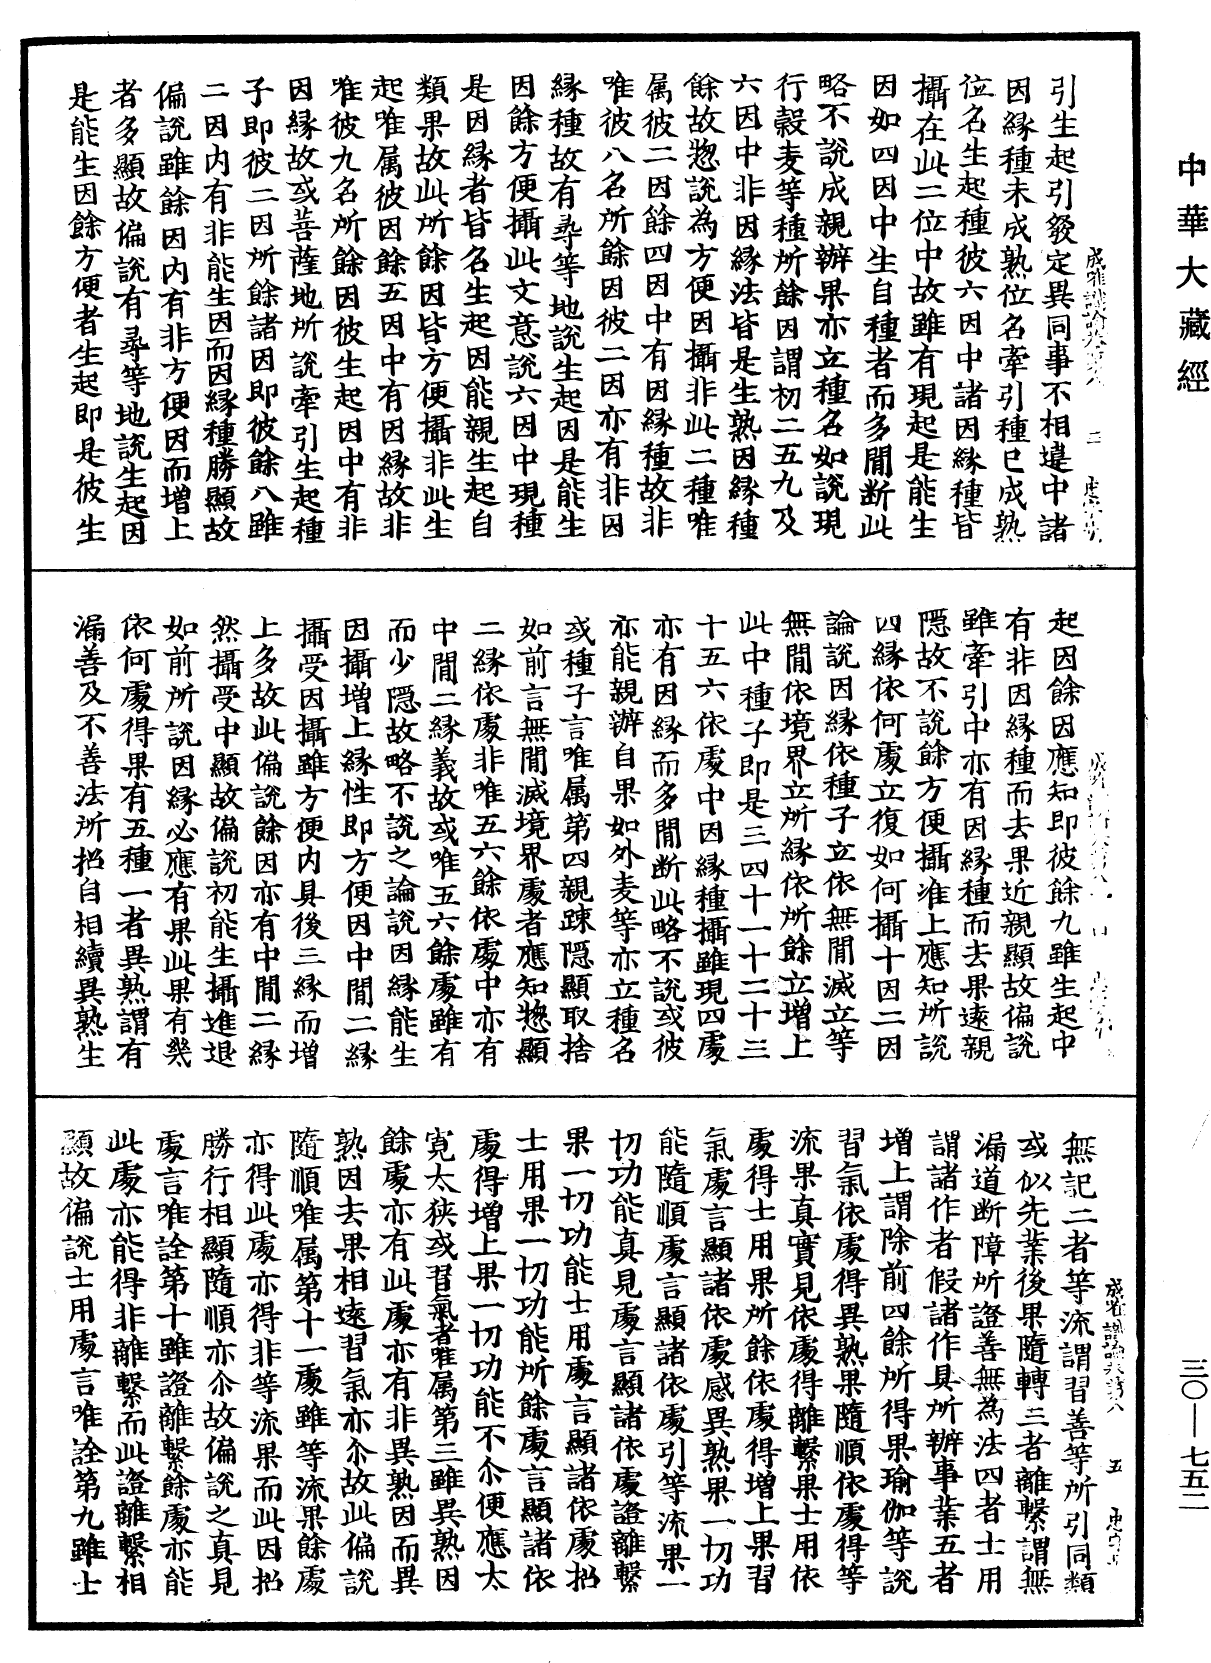 中華大藏經
引生起引發定異同事不相違中諸
因緣種未成熟位名牽引種已成熟
位名生起種彼六因中諸因緣種皆
攝在此二位中故雖有現起是能生
因如四因中生自種者而多間斷此
略不說或親辦果亦立種名如說現
行穀麦等種所餘因謂初二五九及
六因中非因緣法皆是生熟因緣種
餘故惣說為方便因攝非此二種唯
属彼二因餘四因中有因緣種故非
唯彼八名所餘因彼二因亦有非因
緣種故有尋等地說生起因是能生
因餘方便攝此文意說六因中現種
是因緣者皆名生起因能親生起自
類果故此所餘因皆方便攝非此生
起唯属彼因餘五因中有因緣故非
唯彼九名所餘因彼生起因中有非
因緣故或菩薩地所說牽引生起種
子即彼二因所餘諸因即彼餘八雖
二因內有非能生因而因緣種勝顯故
偏說雖餘因內有非方便因而增上
者多顯故偏說有尋等地說生起因
是能生因餘方便者生起即是彼生
起因餘因應知即彼餘九雖生起中
有非因緣種而去果近親顯故偏說
雖牽引中亦有因緣種而去果遠親
隱故不說餘方便攝准上應知所說
四緣依何處立復如何攝十因二因
論說因緣依種子立依無間滅立等
無間依境界立所緣依所餘立增上
此中種子即是三四十一十二十三
十五六依處中因緣種攝雖現四處
亦有因緣而多間斷此略不說或彼
亦能親辦自果如外麦等亦立種名
或種子言唯属第四親踈隱顯取捨
如前言無間滅境界處者應知惣顯
二緣依處非唯五六餘依處中亦有
中間二緣義故或唯五六餘處雖有
而少隱故略不說之論說因緣能生
因攝增上緣性即方便因中間二緣
攝受因攝雖方便內具後三緣而增
上多故此偏說餘因亦有中間二緣
然攝受中顯故偏說初能生攝進退
如前所說因緣必應有果此果有幾
依何處得果有五種一者異熟謂有
漏善及不善法所招自相續異熟生
無記二者等流謂習善等所引同類
或似先業後果隨轉三者離繫謂無
漏道斷障所證善無為法四者士用
謂諸作者假諸作具所辦事業五者
增上謂除前四餘所得果瑜伽等說
習氣依處得異熟果隨順依處得等
流果真實見依處得離繫果士用依
處得士用果所餘依處得增上果習
氣處言顯諸依處感異熟果一切功
能隨順處言顯諸依處引等流果一
切功能真見處言顯諸依處證離繫
果一切功能士用處言顯諸依處招
士用果一切功能所餘處言顯諸依
處得增上果一切功能不尒便應太
寬太狹或習氣者唯属第三雖異熟因
餘處亦有此處亦有非異熟因而異
熟因去果相遠習氣亦尒故此偏說
隨順唯属第十一處雖等流果餘處
亦得此處亦得非等流果而此因招
勝行相顯隨順亦尒故偏說之真見
處言唯詮第十雖證離繫餘處亦能
此處亦能得非離繫而此證離繫相
顯故偏說士用處言唯詮第九雖士
三〇—七五二